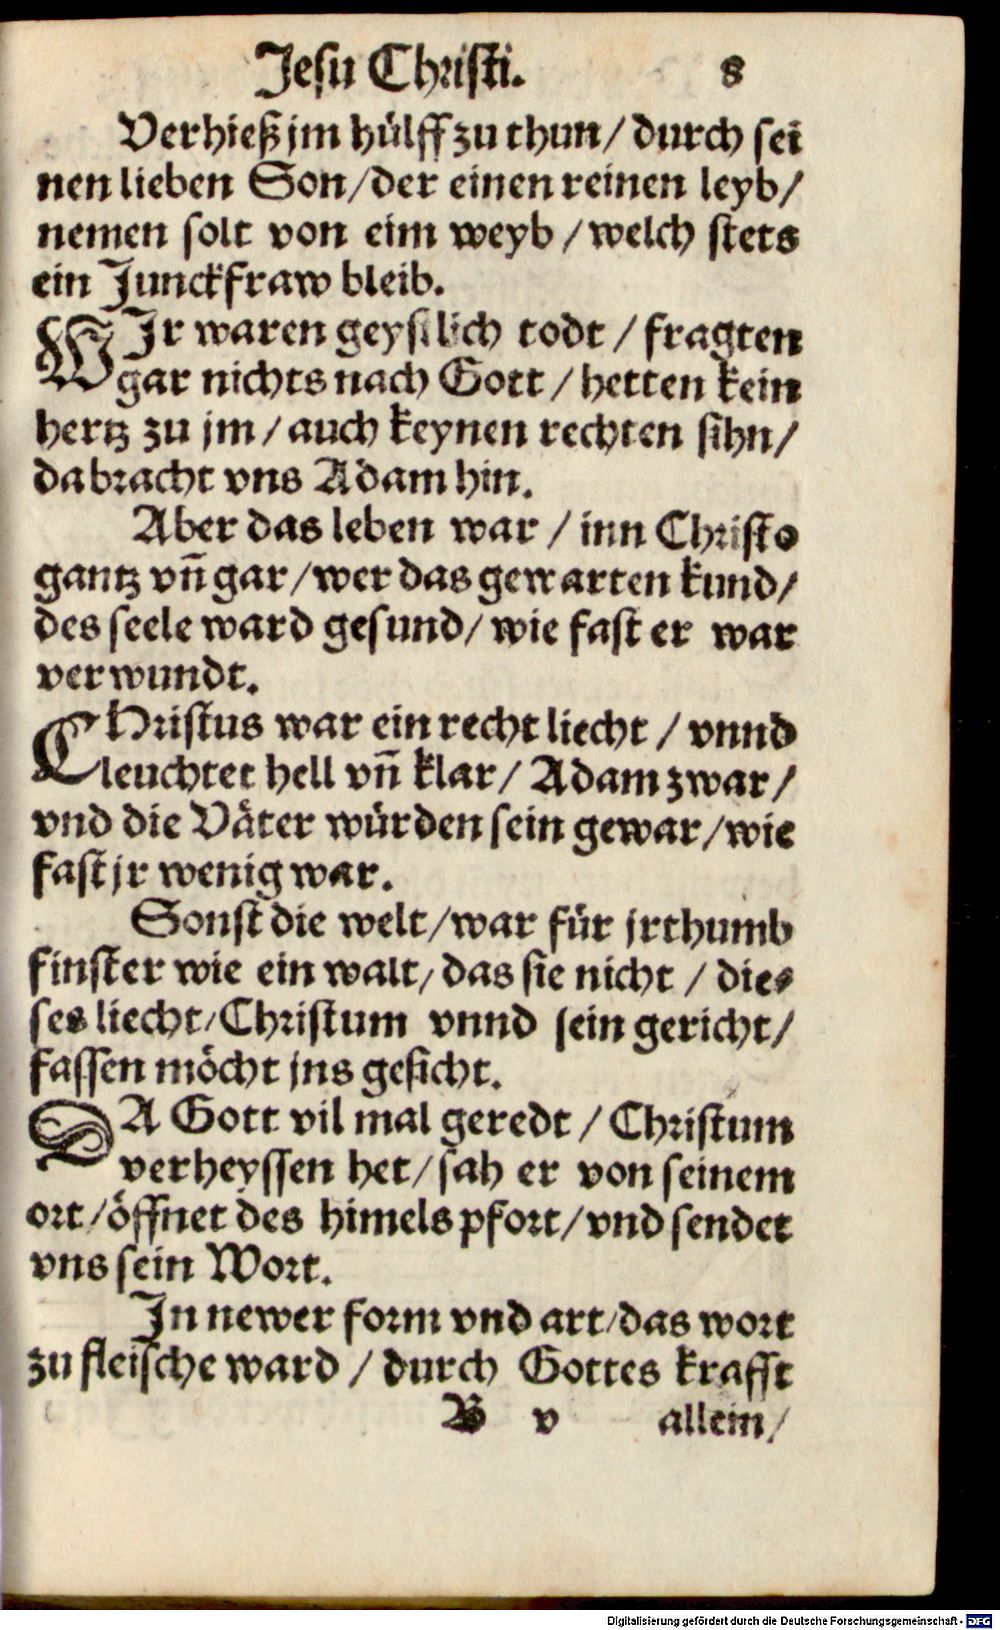 Jesu Christi. 8
Verhieß jm hülff zu thun / durch sei
nen lieben Son / der einen reinen leyb /
nemen solt von eim weyb / welch stets
ein Junckfraw bleib.
WJr waren geystlich todt / fragten
gar nichts nach Gott / hetten kein
hertz zu jm / auch keynen rechten sihn /
da bracht vns Adam hin.
Aber das leben war / inn Christo
gantz vn̄ gar / wer das gewarten kund /
des seele ward gesund / wie fast er war
verwundt.
CHristus war ein recht liecht / vnnd
leuchtet hell vn̄ klar / Adam zwar /
vnd die Väter würden sein gewar / wie
fast jr wenig war.
Sonst die welt / war für jrthumb
finster wie ein walt / das sie nicht / die⸗
ses liecht / Christum vnnd sein gericht /
fassen möcht jns gesicht.
DA Gott vil mal geredt / Christum
verheyssen het / sah er von seinem
ort / öffnet des himels pfort / vnd sendet
vns sein Wort.
In newer form vnd art / das wort
zu fleische ward / durch Gottes krafft
B v allein /
Digitalisierung gefördert durch die Deutsche Forschungsgemeinschaft - DFG